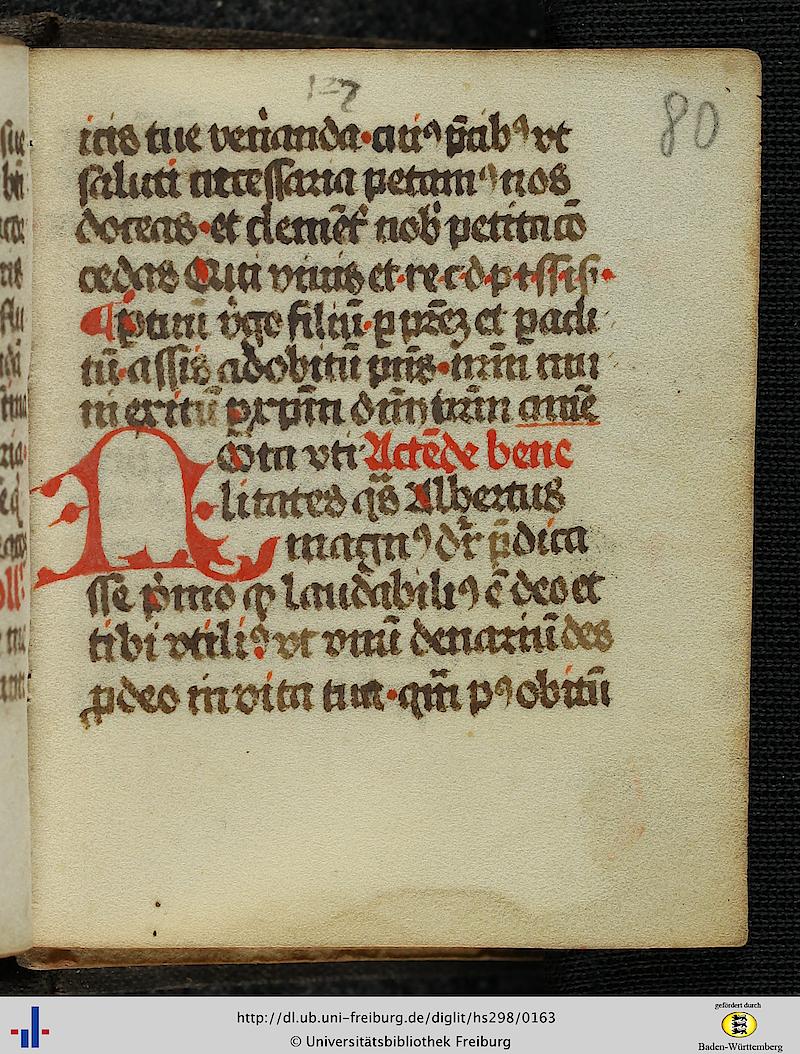 127
80
icis tue venanda · cui⁹ p̄cib⁹ vt
saluti necessaria petam⁹ nos
doceas · et clemēt nob petita cō
cedas Qui viuis et
virgo filiū · p
tū · assis ad obitū · nr̄m
exitū dn̄m nr̄m amē
Nota vti Actēde bene
litates qs Albertus
magn⁹ dr̄ p̄dica
sse p̄mo ꝙ laudabili⁹ ē deo et
tibi vtili⁹ vt vnū denariū des
p deo in vita tua · qm̄ p⁹ obitū
http://dl.ub.uni-freiburg.de/diglit/hs298/0163
© Universitätsbibliothek Freiburg
gefördert durch
Baden-Württemberg